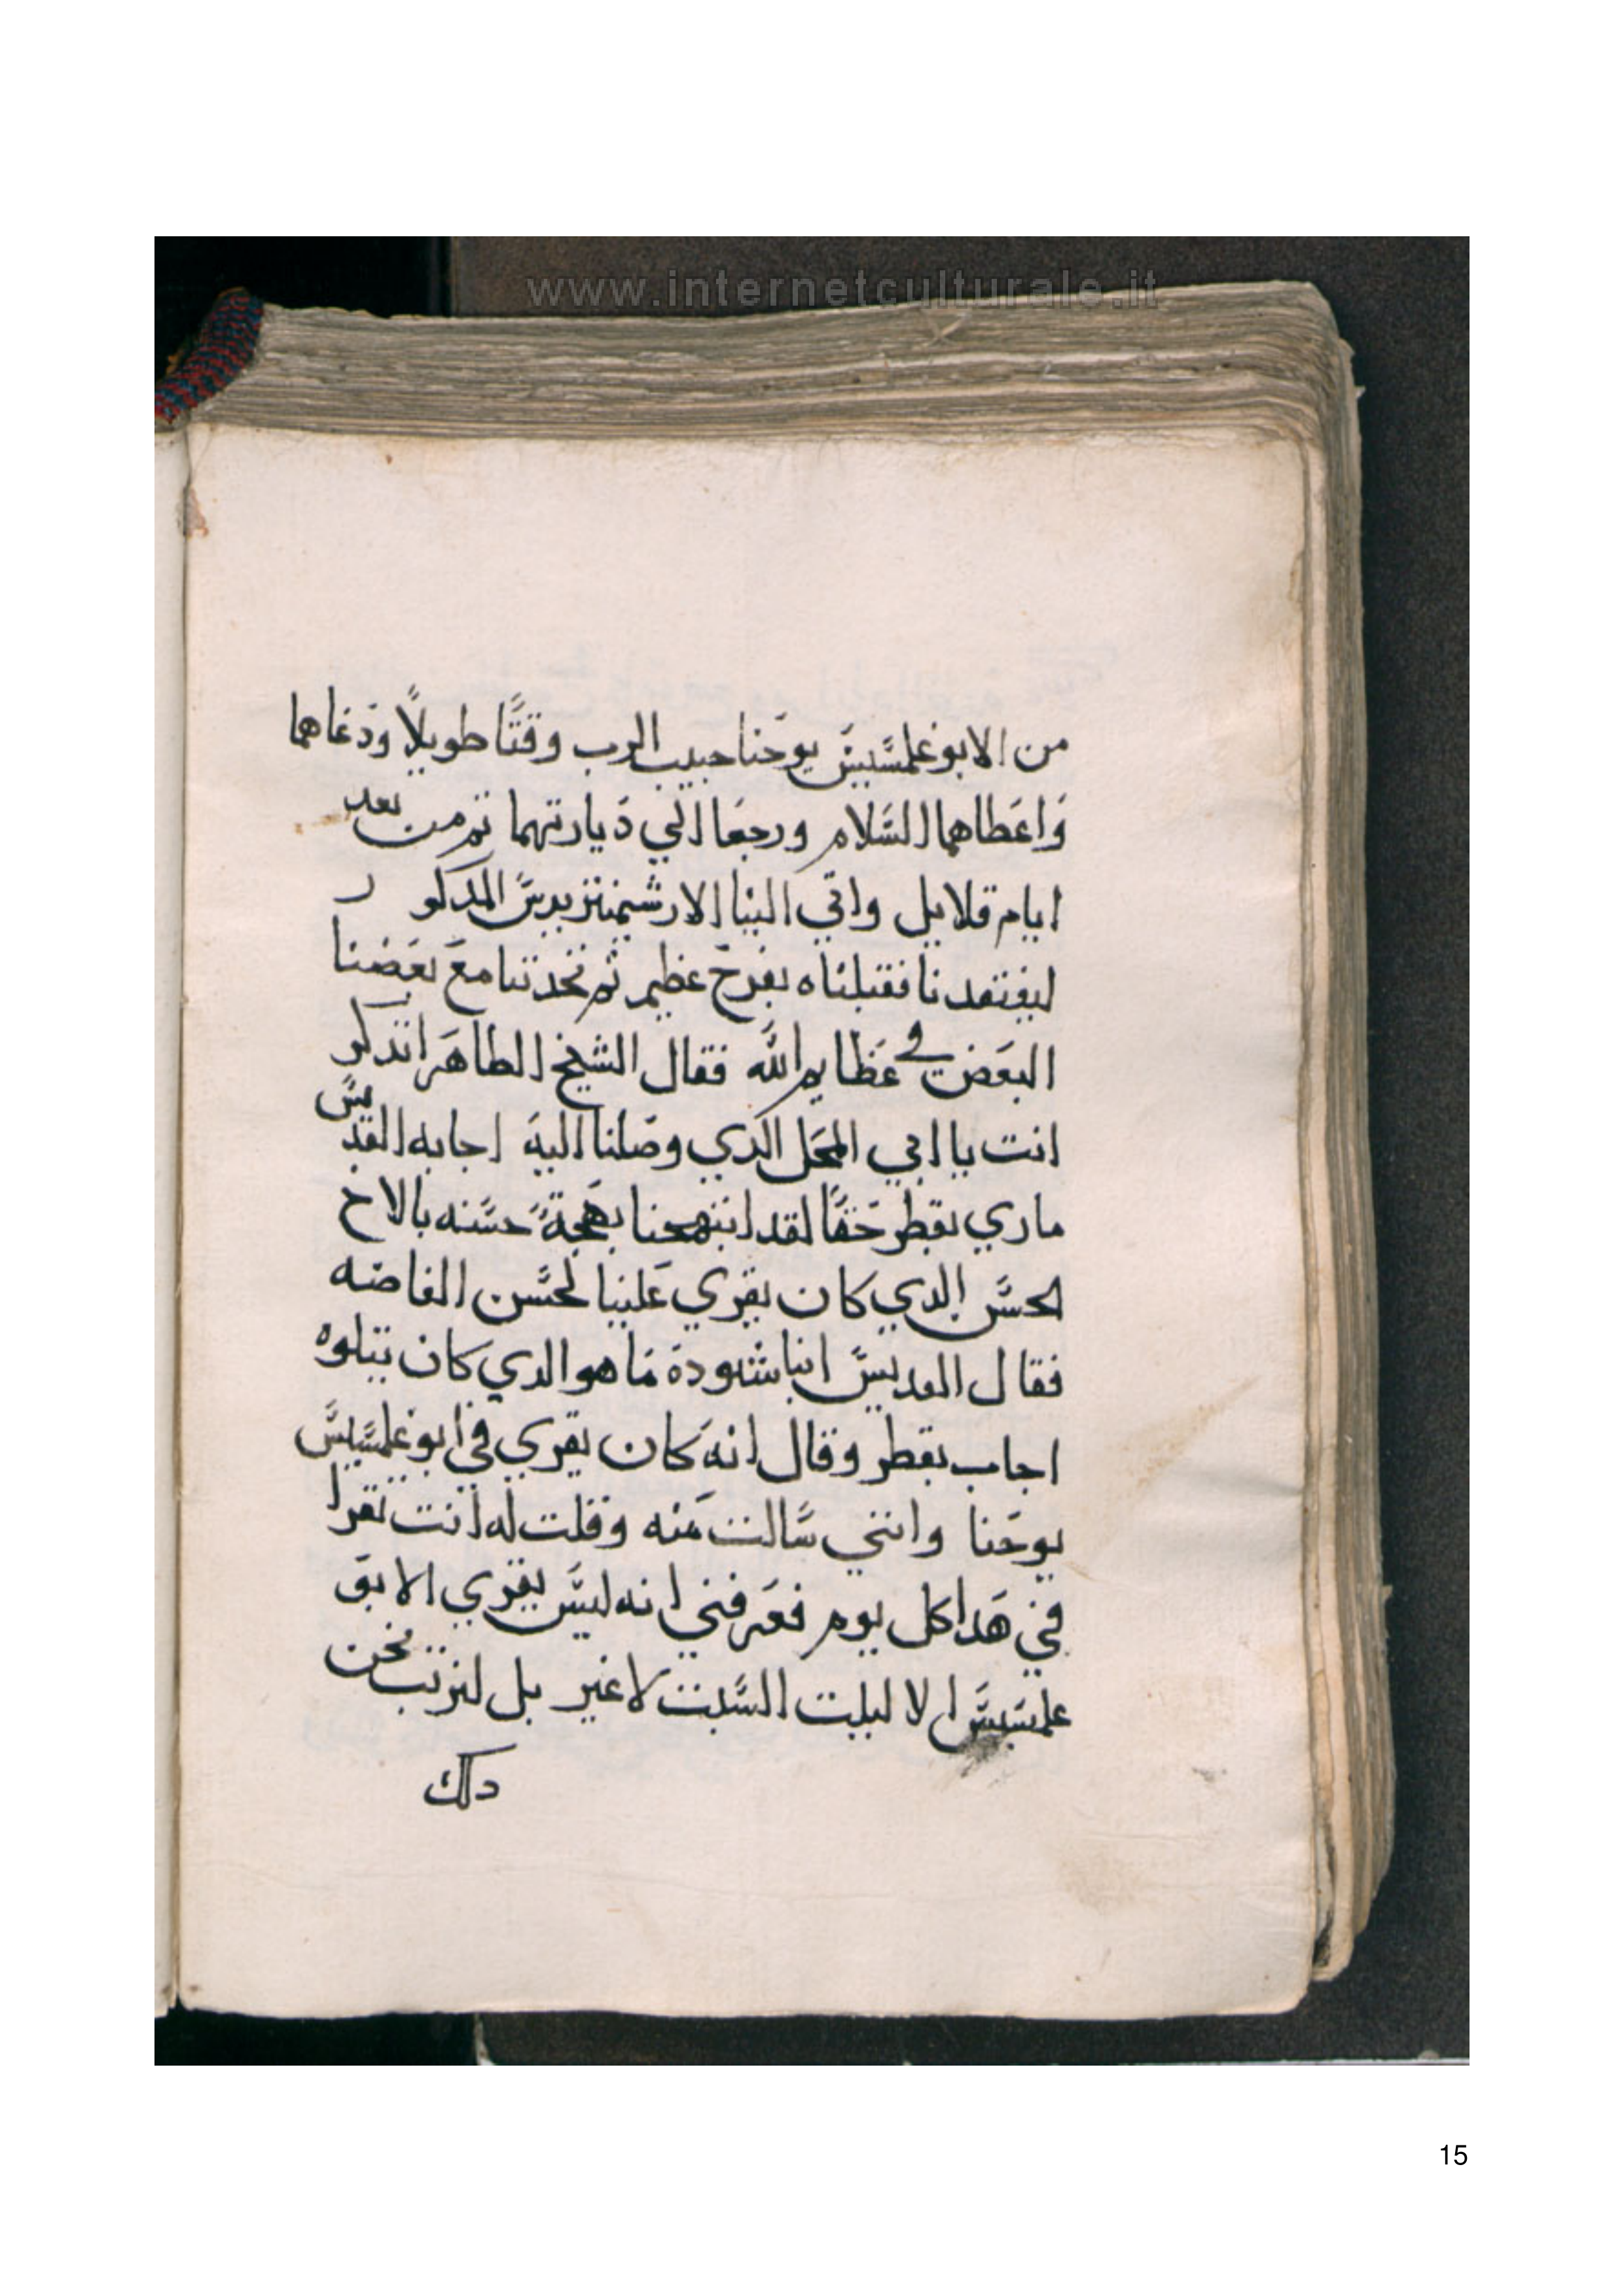 www.internetculturale.it
من الابوغلمسيس يوحنا حبيب الرب وقتًا طويلًا ودعاهما
واعطاهما السلام ورجعا الي ديارتهما تم من بعد
ايام قلايل واتي الينا الارشيمنتريدس المدكور
ليفتقدنا فقبلناه بفرح عظيم ثم تحدتنا مع بعضنا
البعض في عظايم الله فقال الشيخ الطاهر اتدكر
انت يا اخي المحل الدي وصلنا اليه اجابه القديس
ماري بقطر حقًا لقد ابتهجنا بهجة حسنه بالاخ
الحسن الدي كان يقري علينا لحسن الفاضه
فقال القديس انبا شنودة ما هو الدي كان يتلوه
اجاب بقطر وقال انه كان يقري في ابوغلمسيس
يوحنا وانني سالت منه وقلت له انت تقرا
في هدا كل يوم فعرفني انه ليس يقري الابو
علمسيس الا ليلت السبت لا غير بل لنرتب نحن
دلك
15